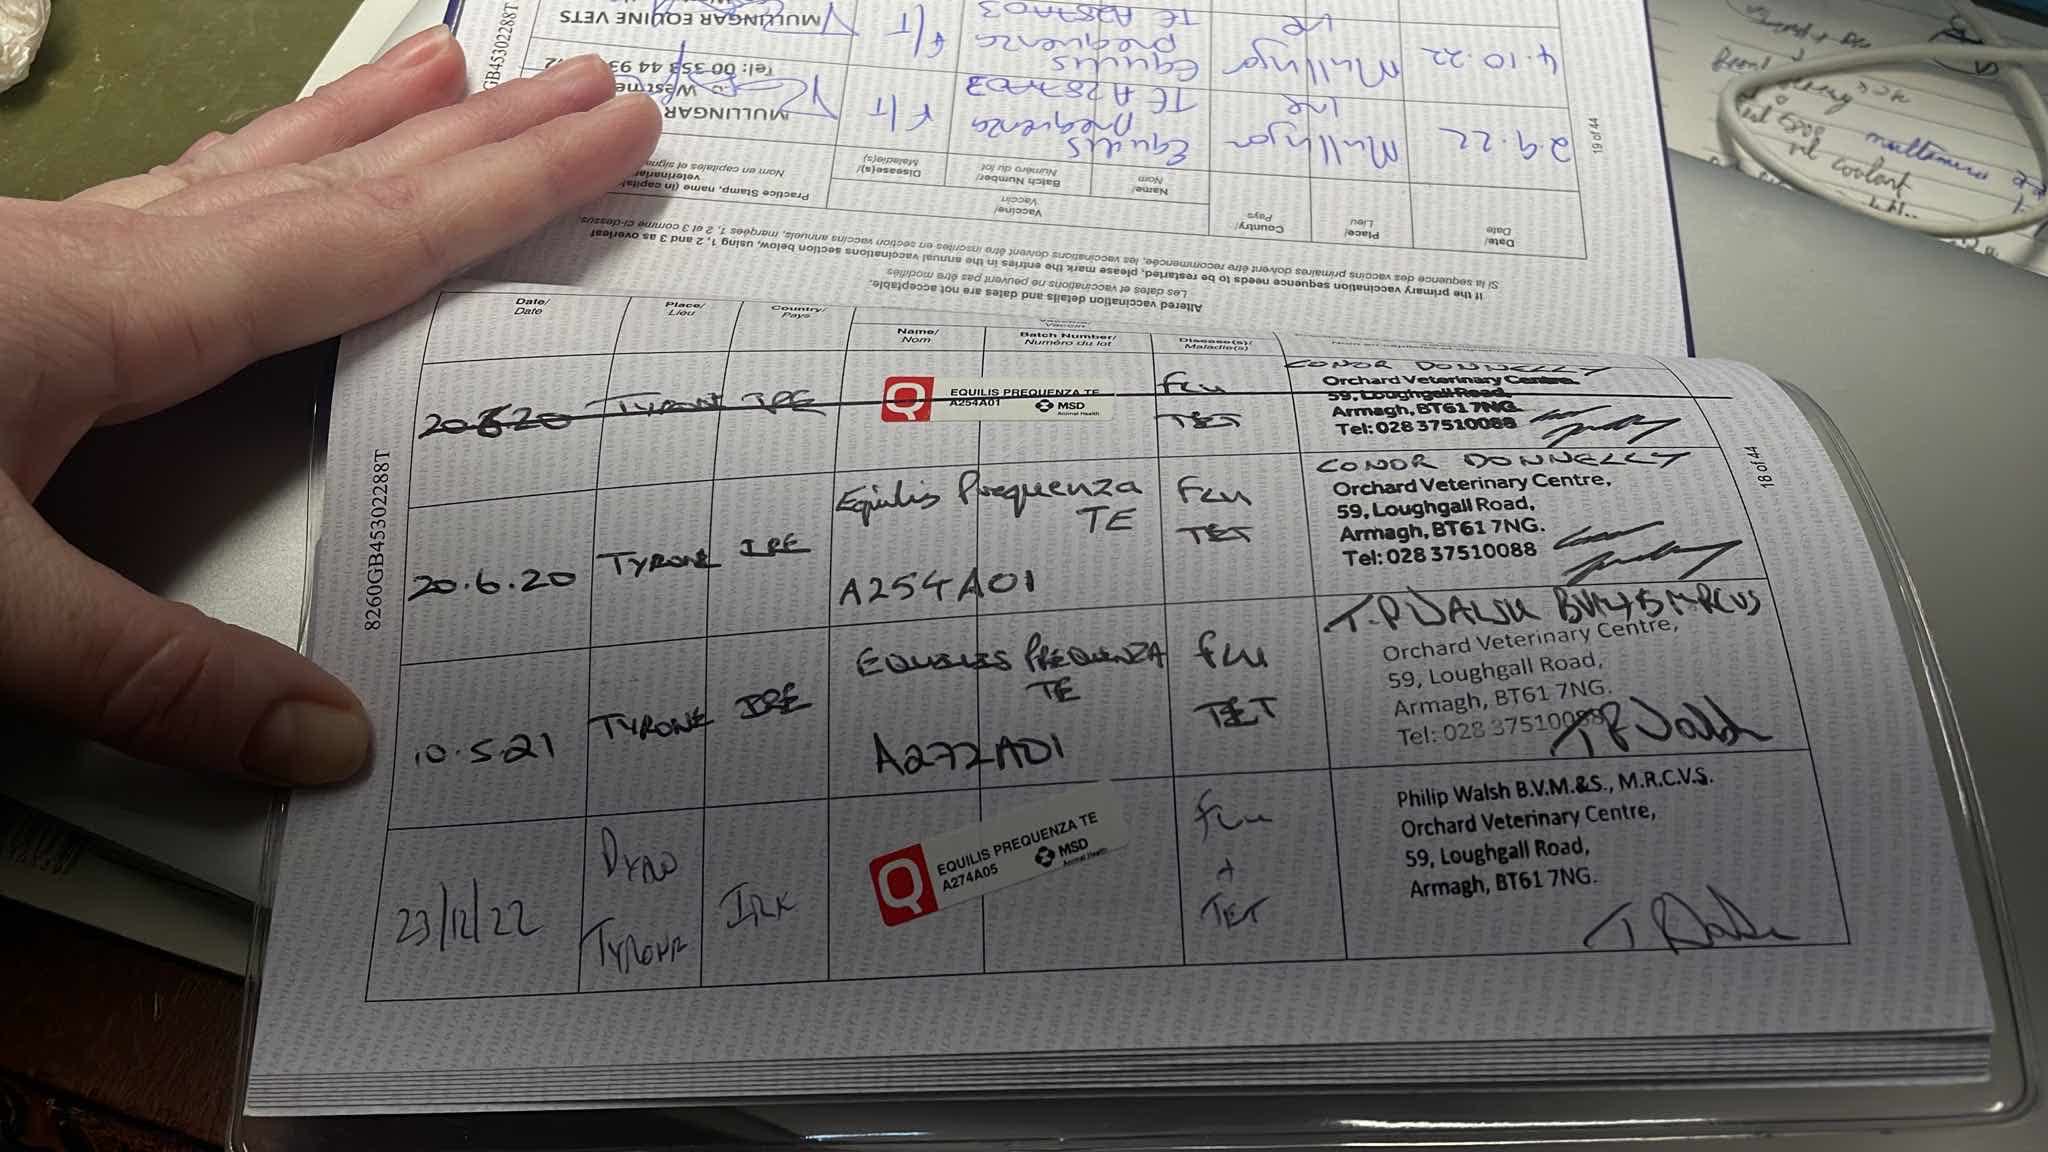 8260GB45302288T
GB45302288T
MULLINGAR EQUINE VETS
4.10.22
Mullingar
Ire
Equilis
prequenza
TE A287A03
F/T
Tel: 00 353 44 93
2.9.22
Mullingar
Ire
Equilis
prequenza
TE A287A03
F/T
MULLINGAR
19 of 44
Date/
Date
Place/
Lieu
Country/
Pays
Vaccine/
Vaccin
Name/
Nom
Batch Number/
Numéro du lot
Disease(s)/
Maladie(s)
Practice Stamp, name (in capitals
veterinarian
Nom en capitales et signa
Si la séquence des vaccins primaires doivent être recommencée, les vaccinations doivent être inscrites en section vaccins annuals, marqées 1, 2 et 3 comme ci-dessus.
If the primary vaccination sequence needs to be restarted, please mark the entries in the annual vaccinations section below, using 1, 2 and 3 as overleaf
Les dates et vaccinations ne peuvent pas être modifiés
Altered vaccination details and dates are not acceptable.
Date/
Date
Place/
Lieu
Country/
Pays
Vaccine/
Vaccin
Name/
Nom
Batch Number/
Numéro du lot
Disease(s)/
Maladie(s)
20.6.20
TYRONE
IRE
EQUILIS PREQUENZA TE
A254A01
MSD
Animal Health
Flu
TET
CONOR DONNELLY
Orchard Veterinary Centre,
59, Loughgall Road,
Armagh, BT61 7NG.
Tel: 028 37510088
20.6.20
TYRONE
IRE
Equilis Prequenza
TE
A254A01
Flu
TET
CONOR DONNELLY
Orchard Veterinary Centre,
59, Loughgall Road,
Armagh, BT61 7NG.
Tel: 028 37510088
18 of 44
10.5.21
TYRONE
IRE
EQUILIS PREQUENZA
TE
A272A01
Flu
TET
T.P WALSH BVM+S MRCVS
Orchard Veterinary Centre,
59, Loughgall Road,
Armagh, BT61 7NG.
Tel: 028 37510088
T P Walsh
23/12/22
TYRONE
EQUILIS PREQUENZA TE
A274A05
MSD
Animal Health
Flu
+
TET
Philip Walsh B.V.M.&S., M.R.C.V.S.
Orchard Veterinary Centre,
59, Loughgall Road,
Armagh, BT61 7NG.
T P Walsh
coolant